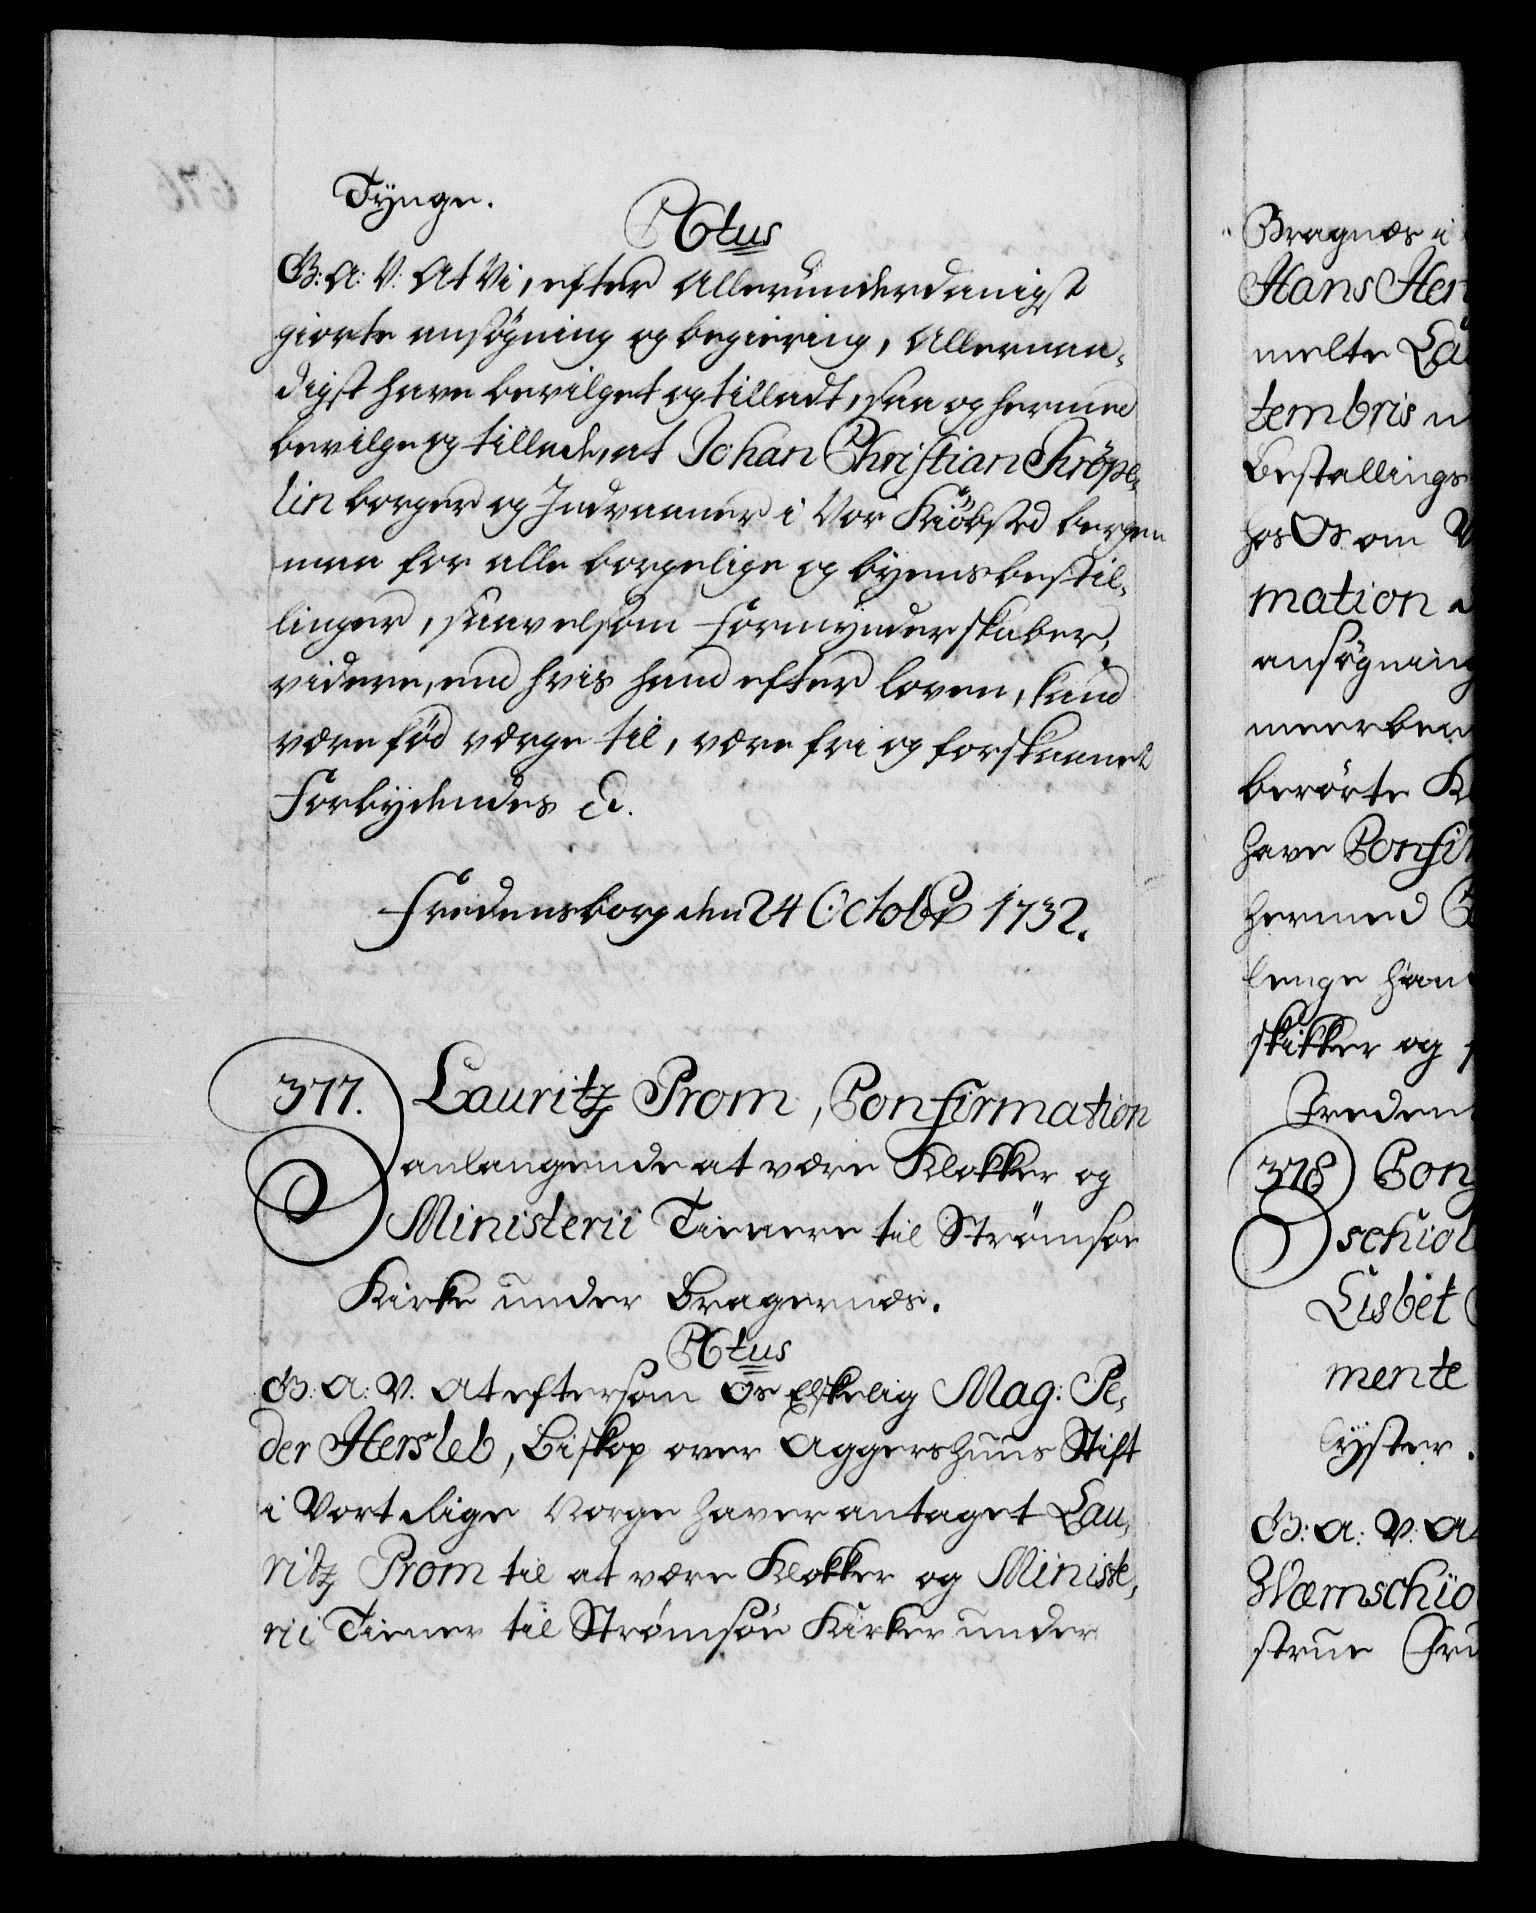 Tynge.
Ctus
G: A: V. At Vi, efter Allerunderdanigst
giorte ansøgning og begiering, Allernaa-
digst have bevilget og tilladt, saa og hermed
bevilge og tillade, at Johan Christian Kröpe-
lin borger og Indvaaner i Vor Kiøbsted bergen
maa for alle borgelige og byens bestil-
linger, saavelsom Formynderskaber,
videre, end hvis hand efter loven, kand
være fød værge til, være fri og forskaanet
Forbydendes &.
Fredensborg den 24 Octobr 1732.
377. Lauritz Prom, Confirmation
anlangende at være Klokker og
Ministerii Tienere til Strømsøe
Kirke under Bragernæs.
Ctus
G: A: V. At eftersom Os Elskelig Mag: Pe-
der Hersleb, Biskop over Aggershuus Stift
i Vort Rige Norge haver antaget Lau-
ritz Prom til at være Klokker og Ministe-
rii Tiener til Strømsøe Kirker under
Bragnæs i
Hans Hen
melte Lau
tembris
Bestallings
hos Os om
mation
ansøgning
meerbem
berörte Kl
have Confir
hermed
lenge hand
skikker og
Fredens
378 Con
schiol
Lisbet
mente
lyster.
G: A: V. At
Wærnschio
strue Fru